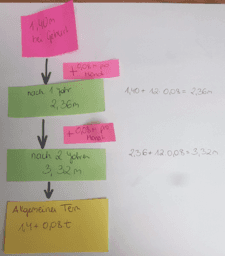 1,40m
bei
+0,08m pro
Monat
nach 1 Jahr
2,36m
1,40 + 12·0,08 = 2,36m
+0,08m pro
Monat
nach 2 Jahren
3,32m
2,36 + 12·0,08 = 3,32m
Allgemeiner Term
1,4 + 0,08t